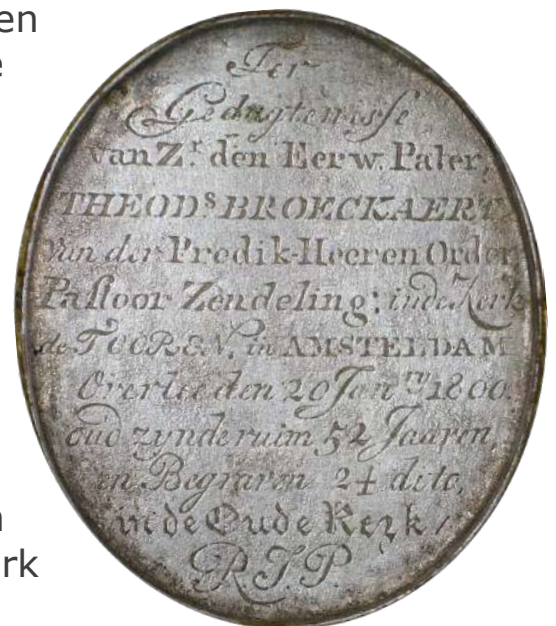 en
e
Ter
Gedagtenisse
van Zr. den Eerw. Pater,
THEODS BROECKAERT
Van der Predik-Heeren Order
Pastoor Zendeling: in de Kerk
de TOOREN, in AMSTELDAM
Overleeden 20 Janry 1800.
oud zynde ruim 52 Jaaren,
en Begraven 24 dito,
in de Oude Kerk
R.I.P.
n
rk